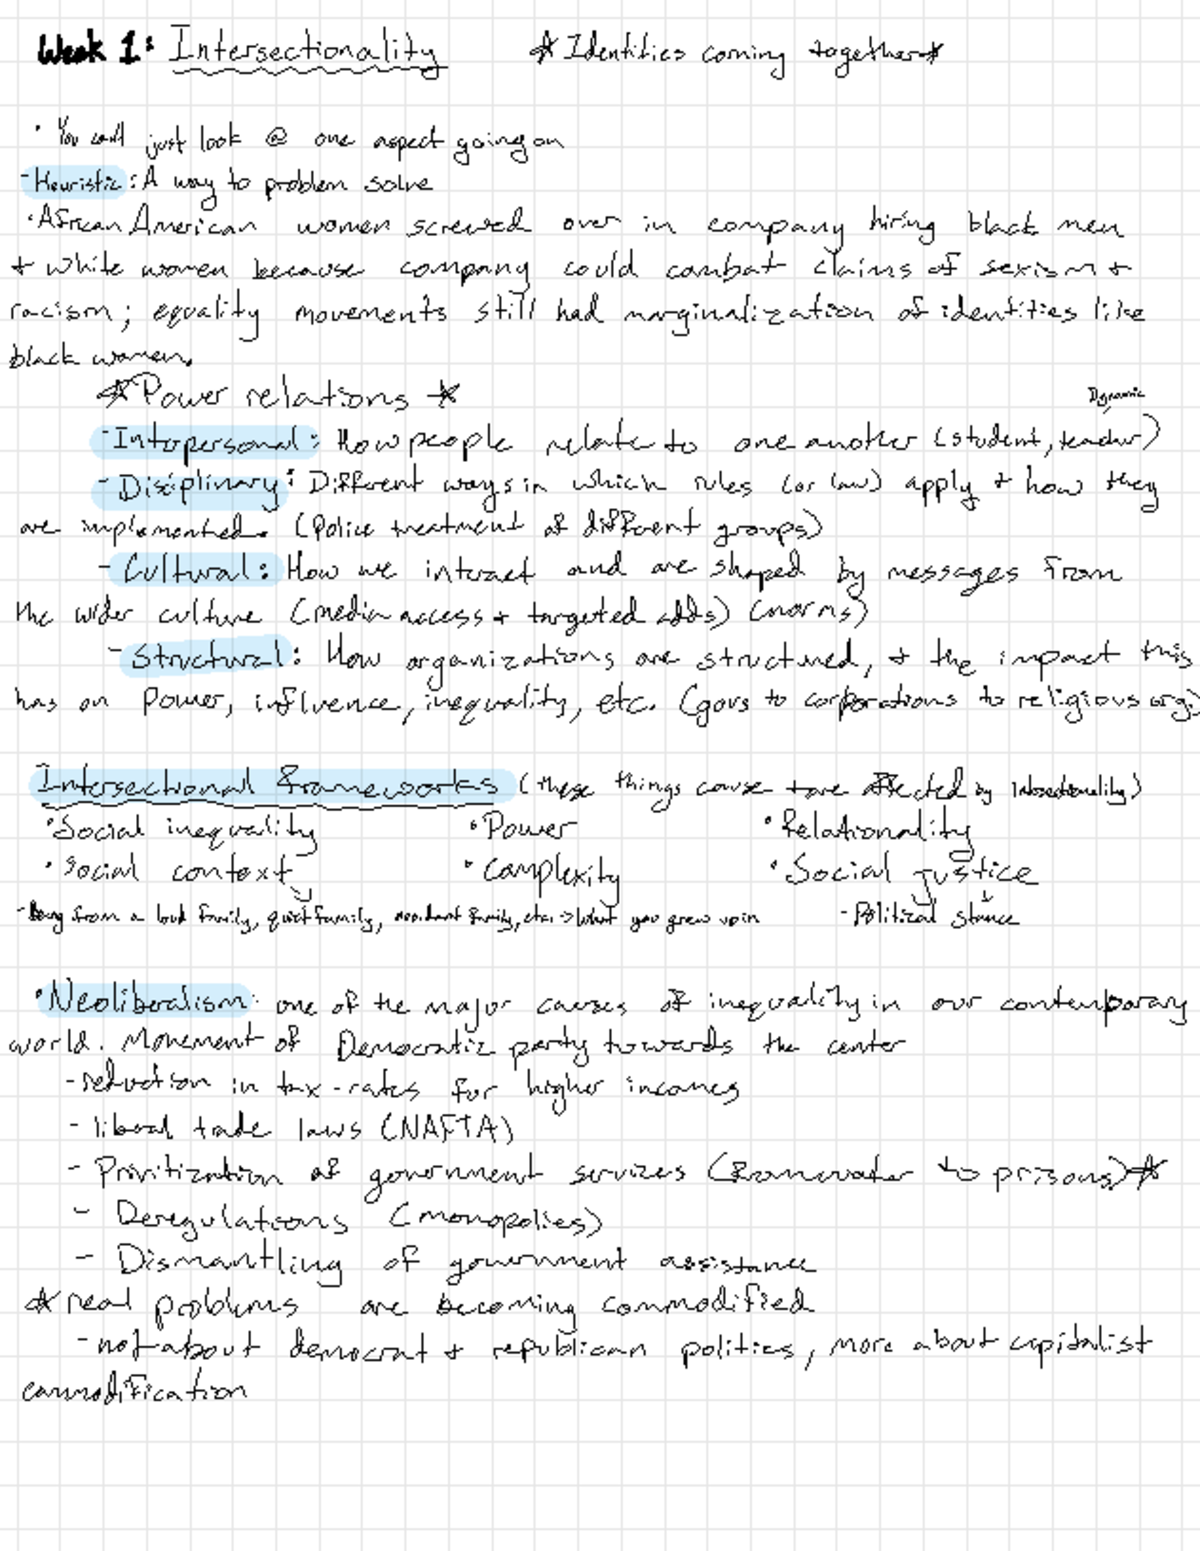 Week 1: Intersectionality ☆ Identities coming together ☆
• You can't just look @ one aspect going on
- Heuristic: A way to problem solve
• African American women screwed over in company hiring black men
+ white women because company could combat claims of sexism +
racism; equality movements still had marginalization of identities like
black women.
☆ Power relations ☆
Dynamic
- Interpersonal: How people relate to one another (student, teacher)
- Disciplinary: Different ways in which rules (or law) apply + how they
are implemented. (Police treatment of different groups)
- Cultural: How we interact and are shaped by messages from
the wider culture (media access + targeted adds) (norms)
- Structural: How organizations are structured, + the impact this
has on power, influence, inequality, etc. (govs to corporations to religious orgs)
Intersectional frameworks (these things cause + are affected by intersectionality)
• Social inequality • Power • Relationality
• Social context • Complexity • Social justice
- from a loud family, quiet family, family, etc. → What you grew up in - Political stance
• Neoliberalism: one of the major causes of inequality in our contemporary
world. Movement of Democratic party towards the center
- reduction in tax-rates for higher incomes
- liberal trade laws (NAFTA)
- Privitization of government services (from water to prisons) ☆
- Deregulations (monopolies)
- Dismantling of government assistance
☆ real problems are becoming commodified
- not about democrat + republican politics, more about capitalist
commodification